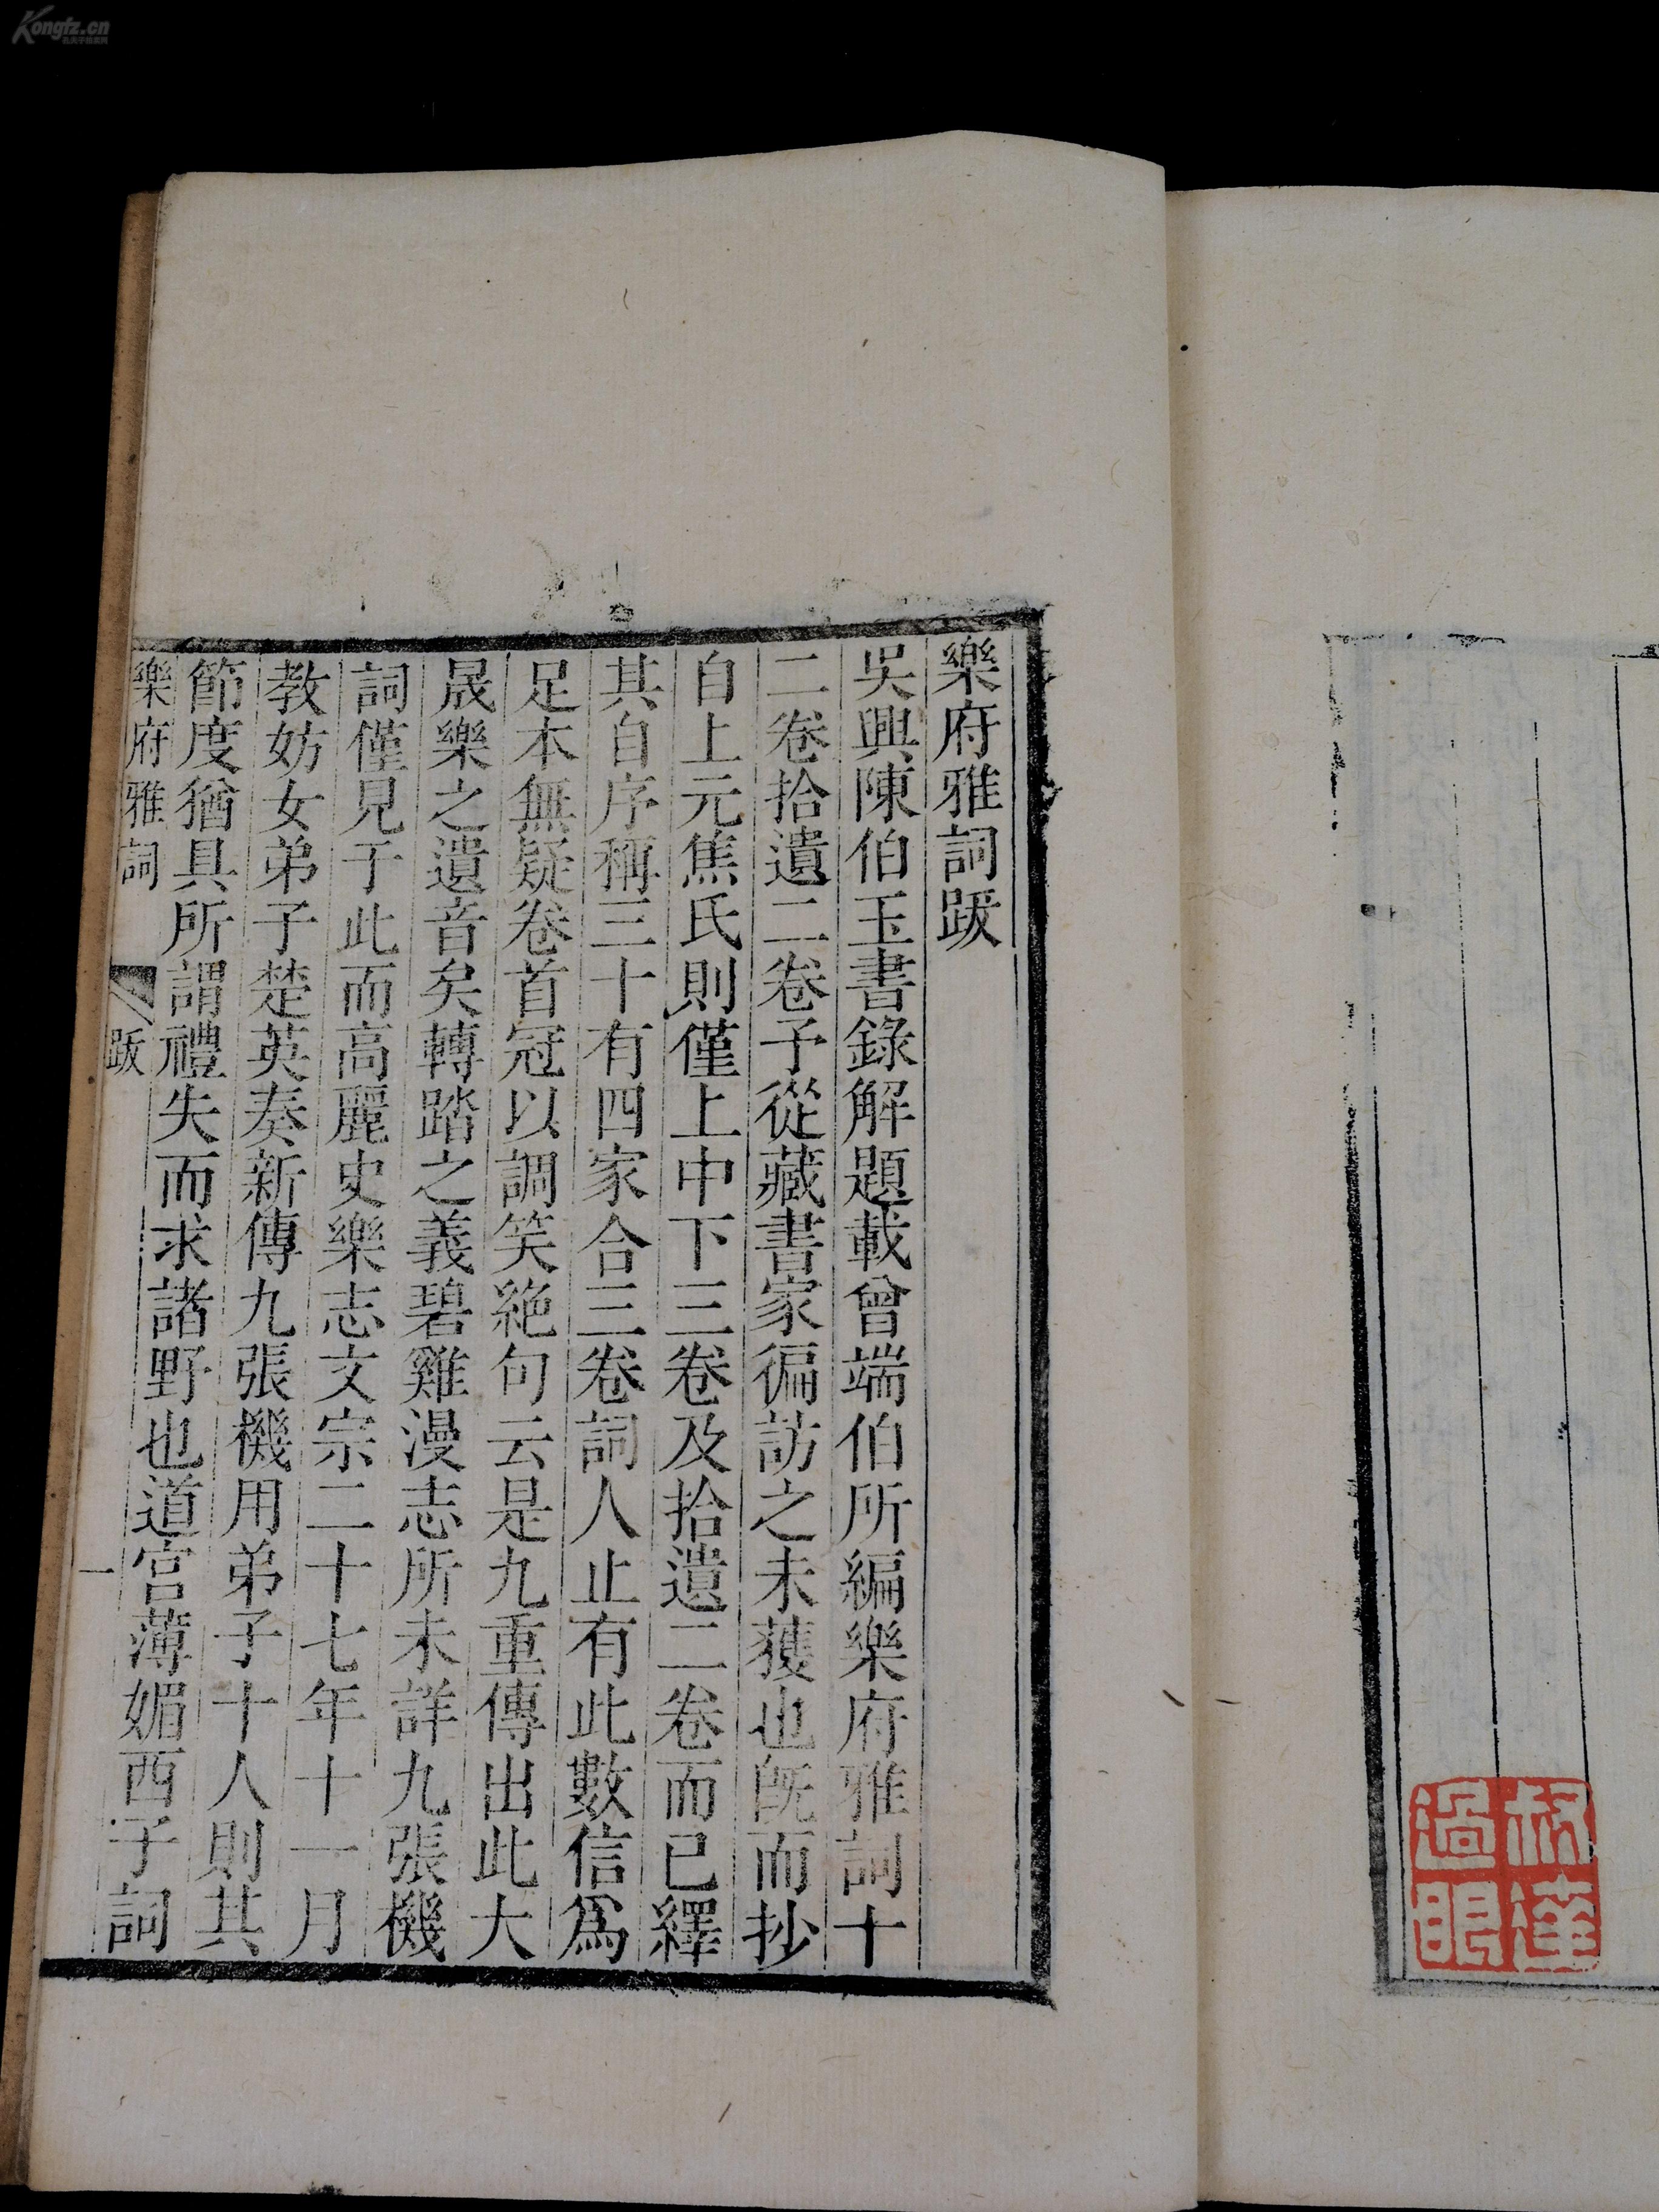 樂府雅詞跋
吳興陳伯玉書錄解題載曾端伯所編樂府雅詞十
二卷拾遺二卷予從藏書家徧訪之未獲也旣而抄
自上元焦氏則僅上中下三卷及拾遺二卷而已繹
其自序稱三十有四家合三卷詞人止有此數信爲
足本無疑卷首冠以調笑絶句云是九重傳出此大
晟樂之遺音矣轉踏之義碧雞漫志所未詳九張機
詞僅見于此而高麗史樂志文宗二十七年十一月
教妨女弟子楚英奏新傳九張機用弟子十人則其
節度猶具所謂禮失而求諸野也道宮薄媚西子詞
樂府雅詞 跋 一
過眼
Kongfz.cn
孔夫子旧书网